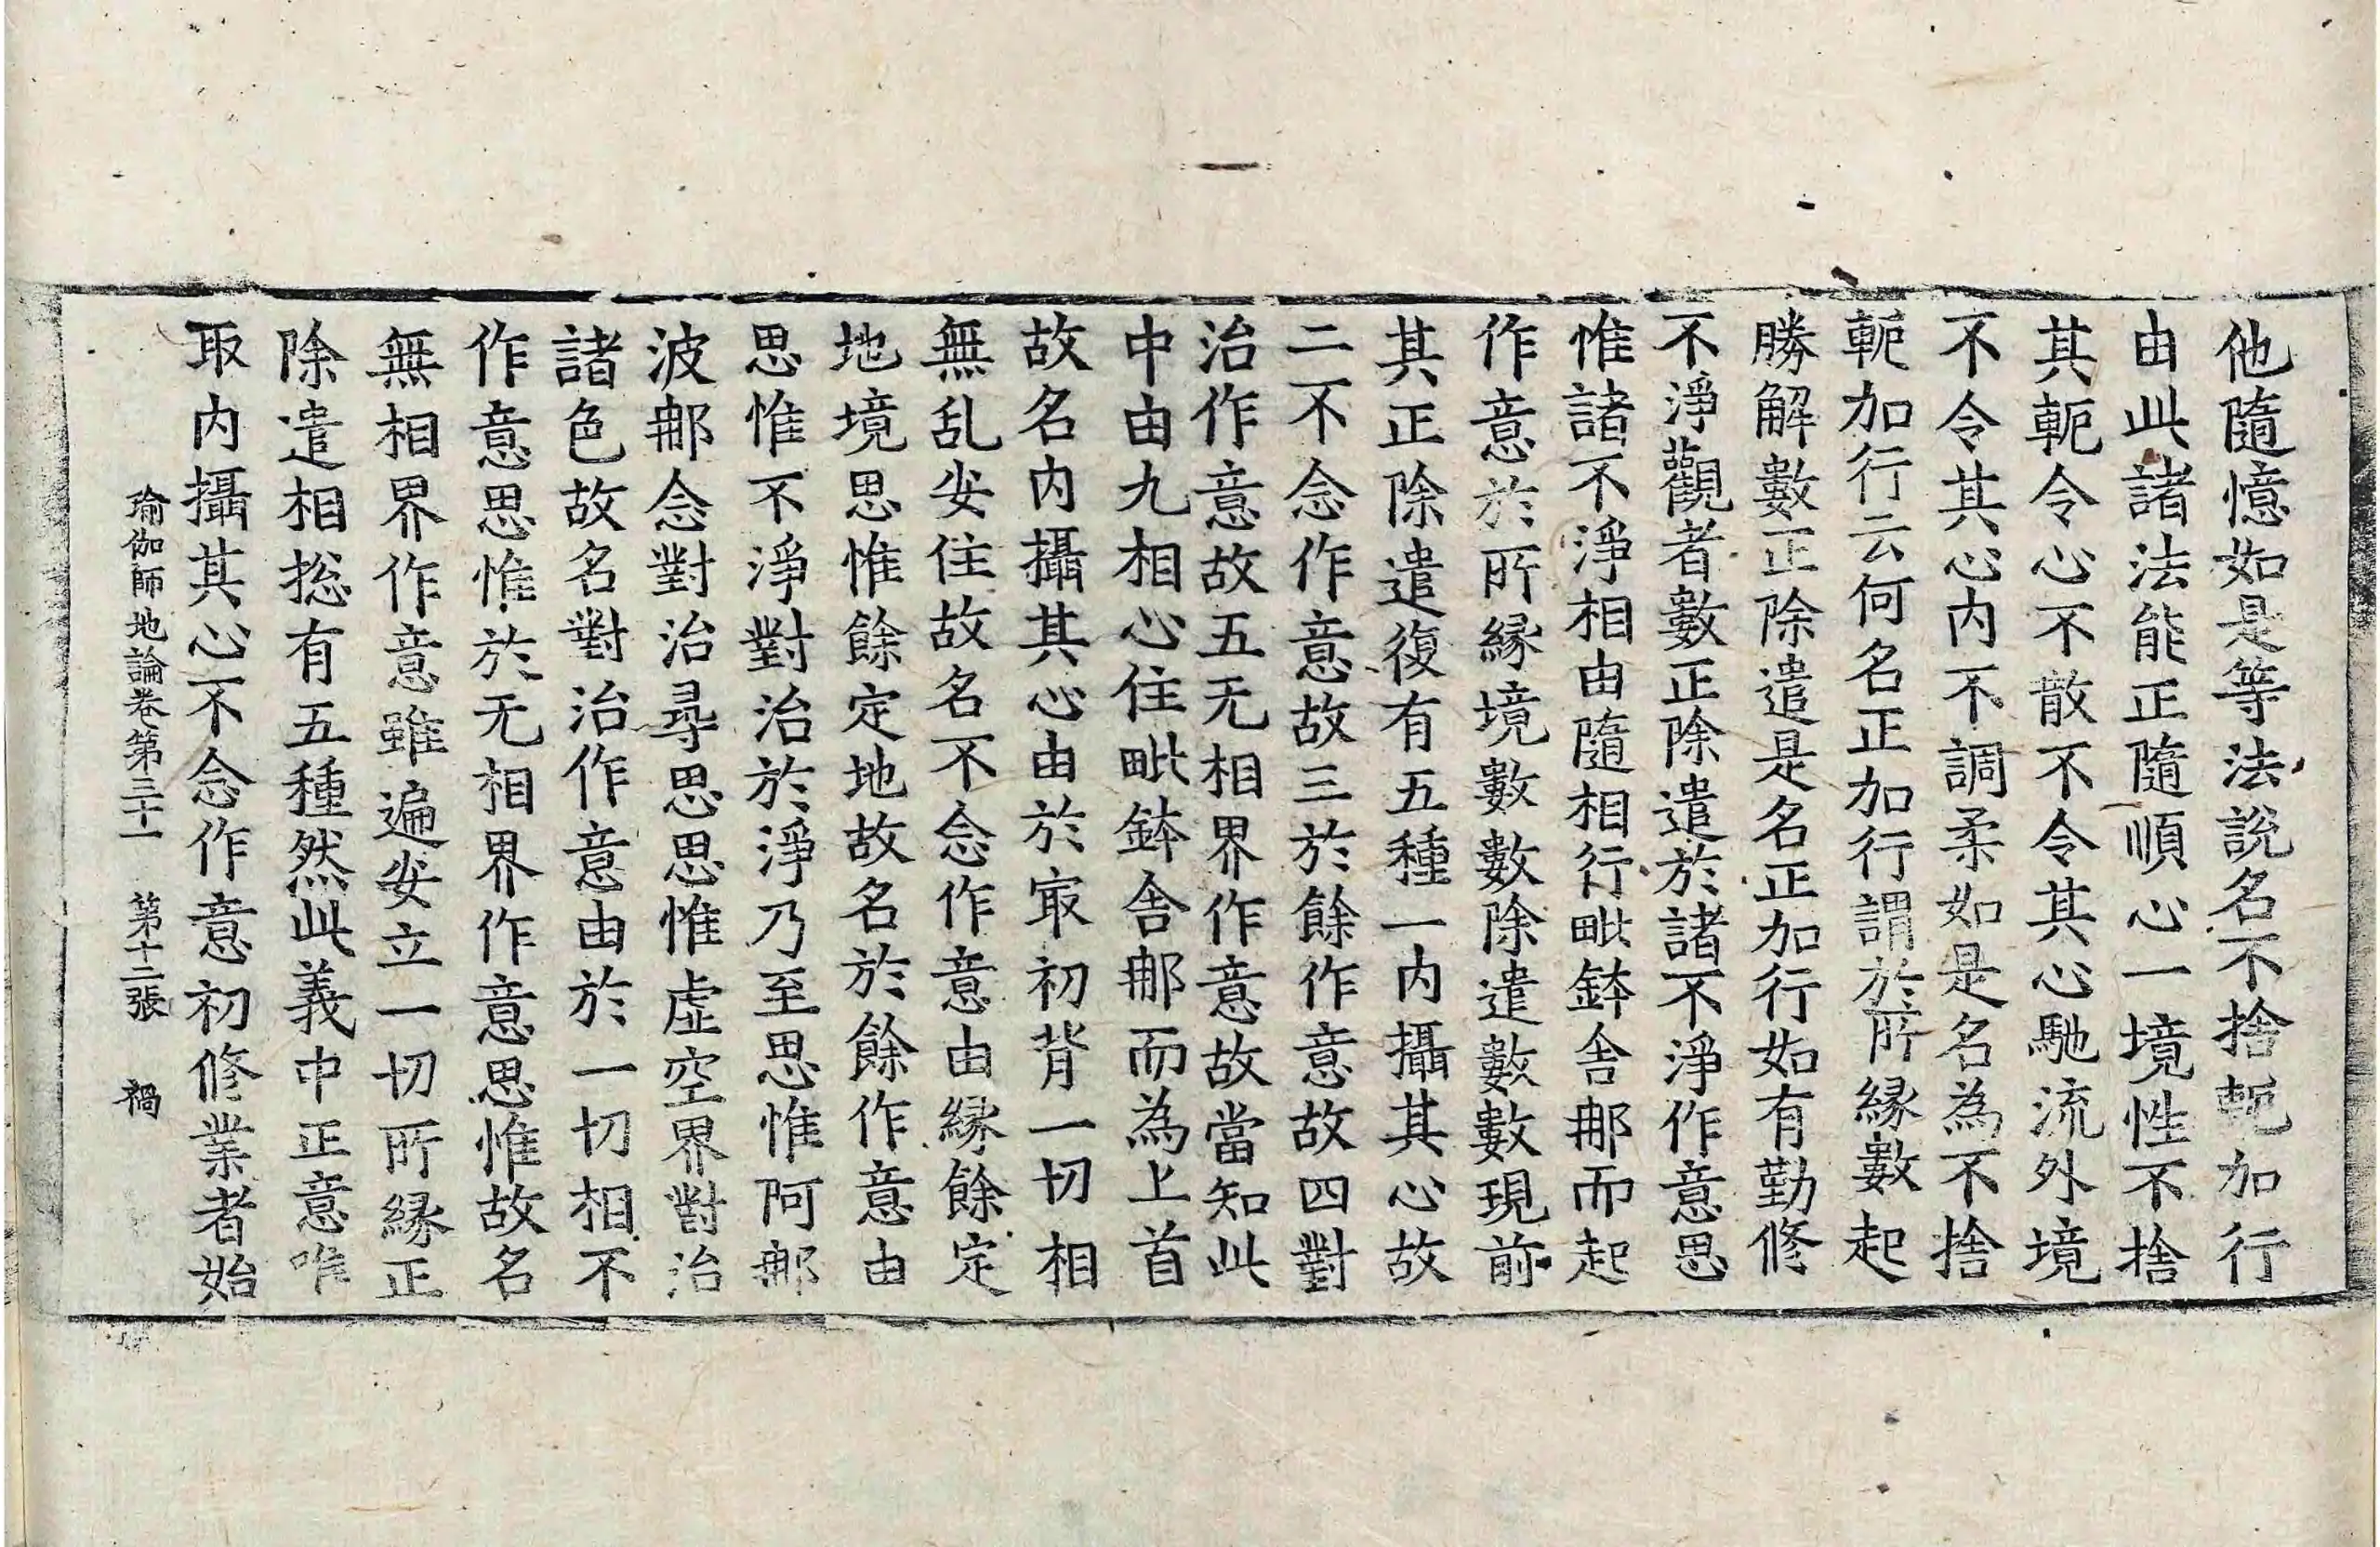 他隨憶如是等法說名不捨軛加行
由此諸法能正隨順心一境性不捨
其軛令心不散不令其心馳流外境
不令其心内不調柔如是名為不捨
軛加行云何名正加行謂於所縁數起
勝解數正除遣是名正加行如有勤修
不淨觀者數正除遣於諸不淨作意思
惟諸不淨相由隨相行毗鉢舍那而起
作意於所縁境數數除遣數數現前
其正除遣復有五種一内攝其心故
二不念作意故三於餘作意故四對
治作意故五无相界作意故當知此
中由九相心住毗鉢舍那而為上首
故名内攝其心由於冣初背一切相
無乱安住故名不念作意由縁餘定
地境思惟餘定地故名於餘作意由
思惟不淨對治於淨乃至思惟阿那
波那念對治尋思思惟虛空界對治
諸色故名對治作意由於一切相不
作意思惟於无相界作意思惟故名
無相界作意雖遍安立一切所縁正
除遣相揔有五種然此義中正意唯
取内攝其心不念作意初修業者始
瑜伽師地論卷第三十一　第十二張　禍